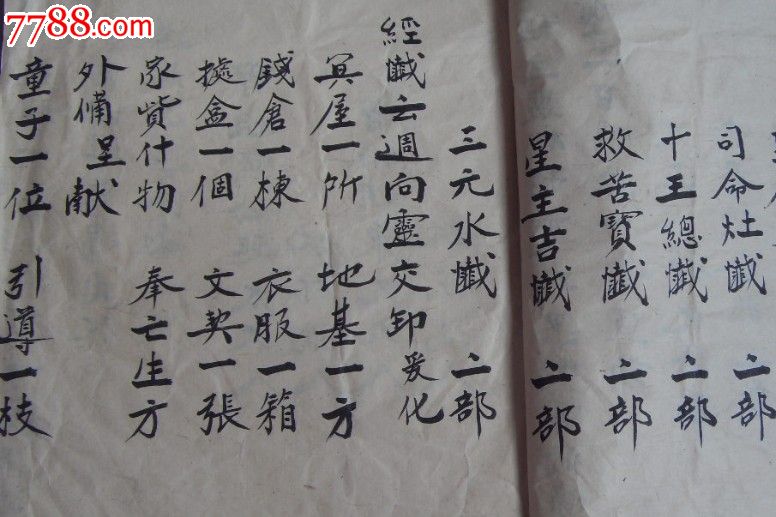 司命灶懺 二部
十王總懺 二部
救苦寶懺 二部
星主吉懺 二部
三元水懺 二部
經懺云週向靈交卸爰化
冥屋一所 地基一方
錢倉一棟 衣服一箱
㨿盒一個 文契一張
家貲什物 奉亡生方
外備呈献
童子一位 引導一枝
7788.com